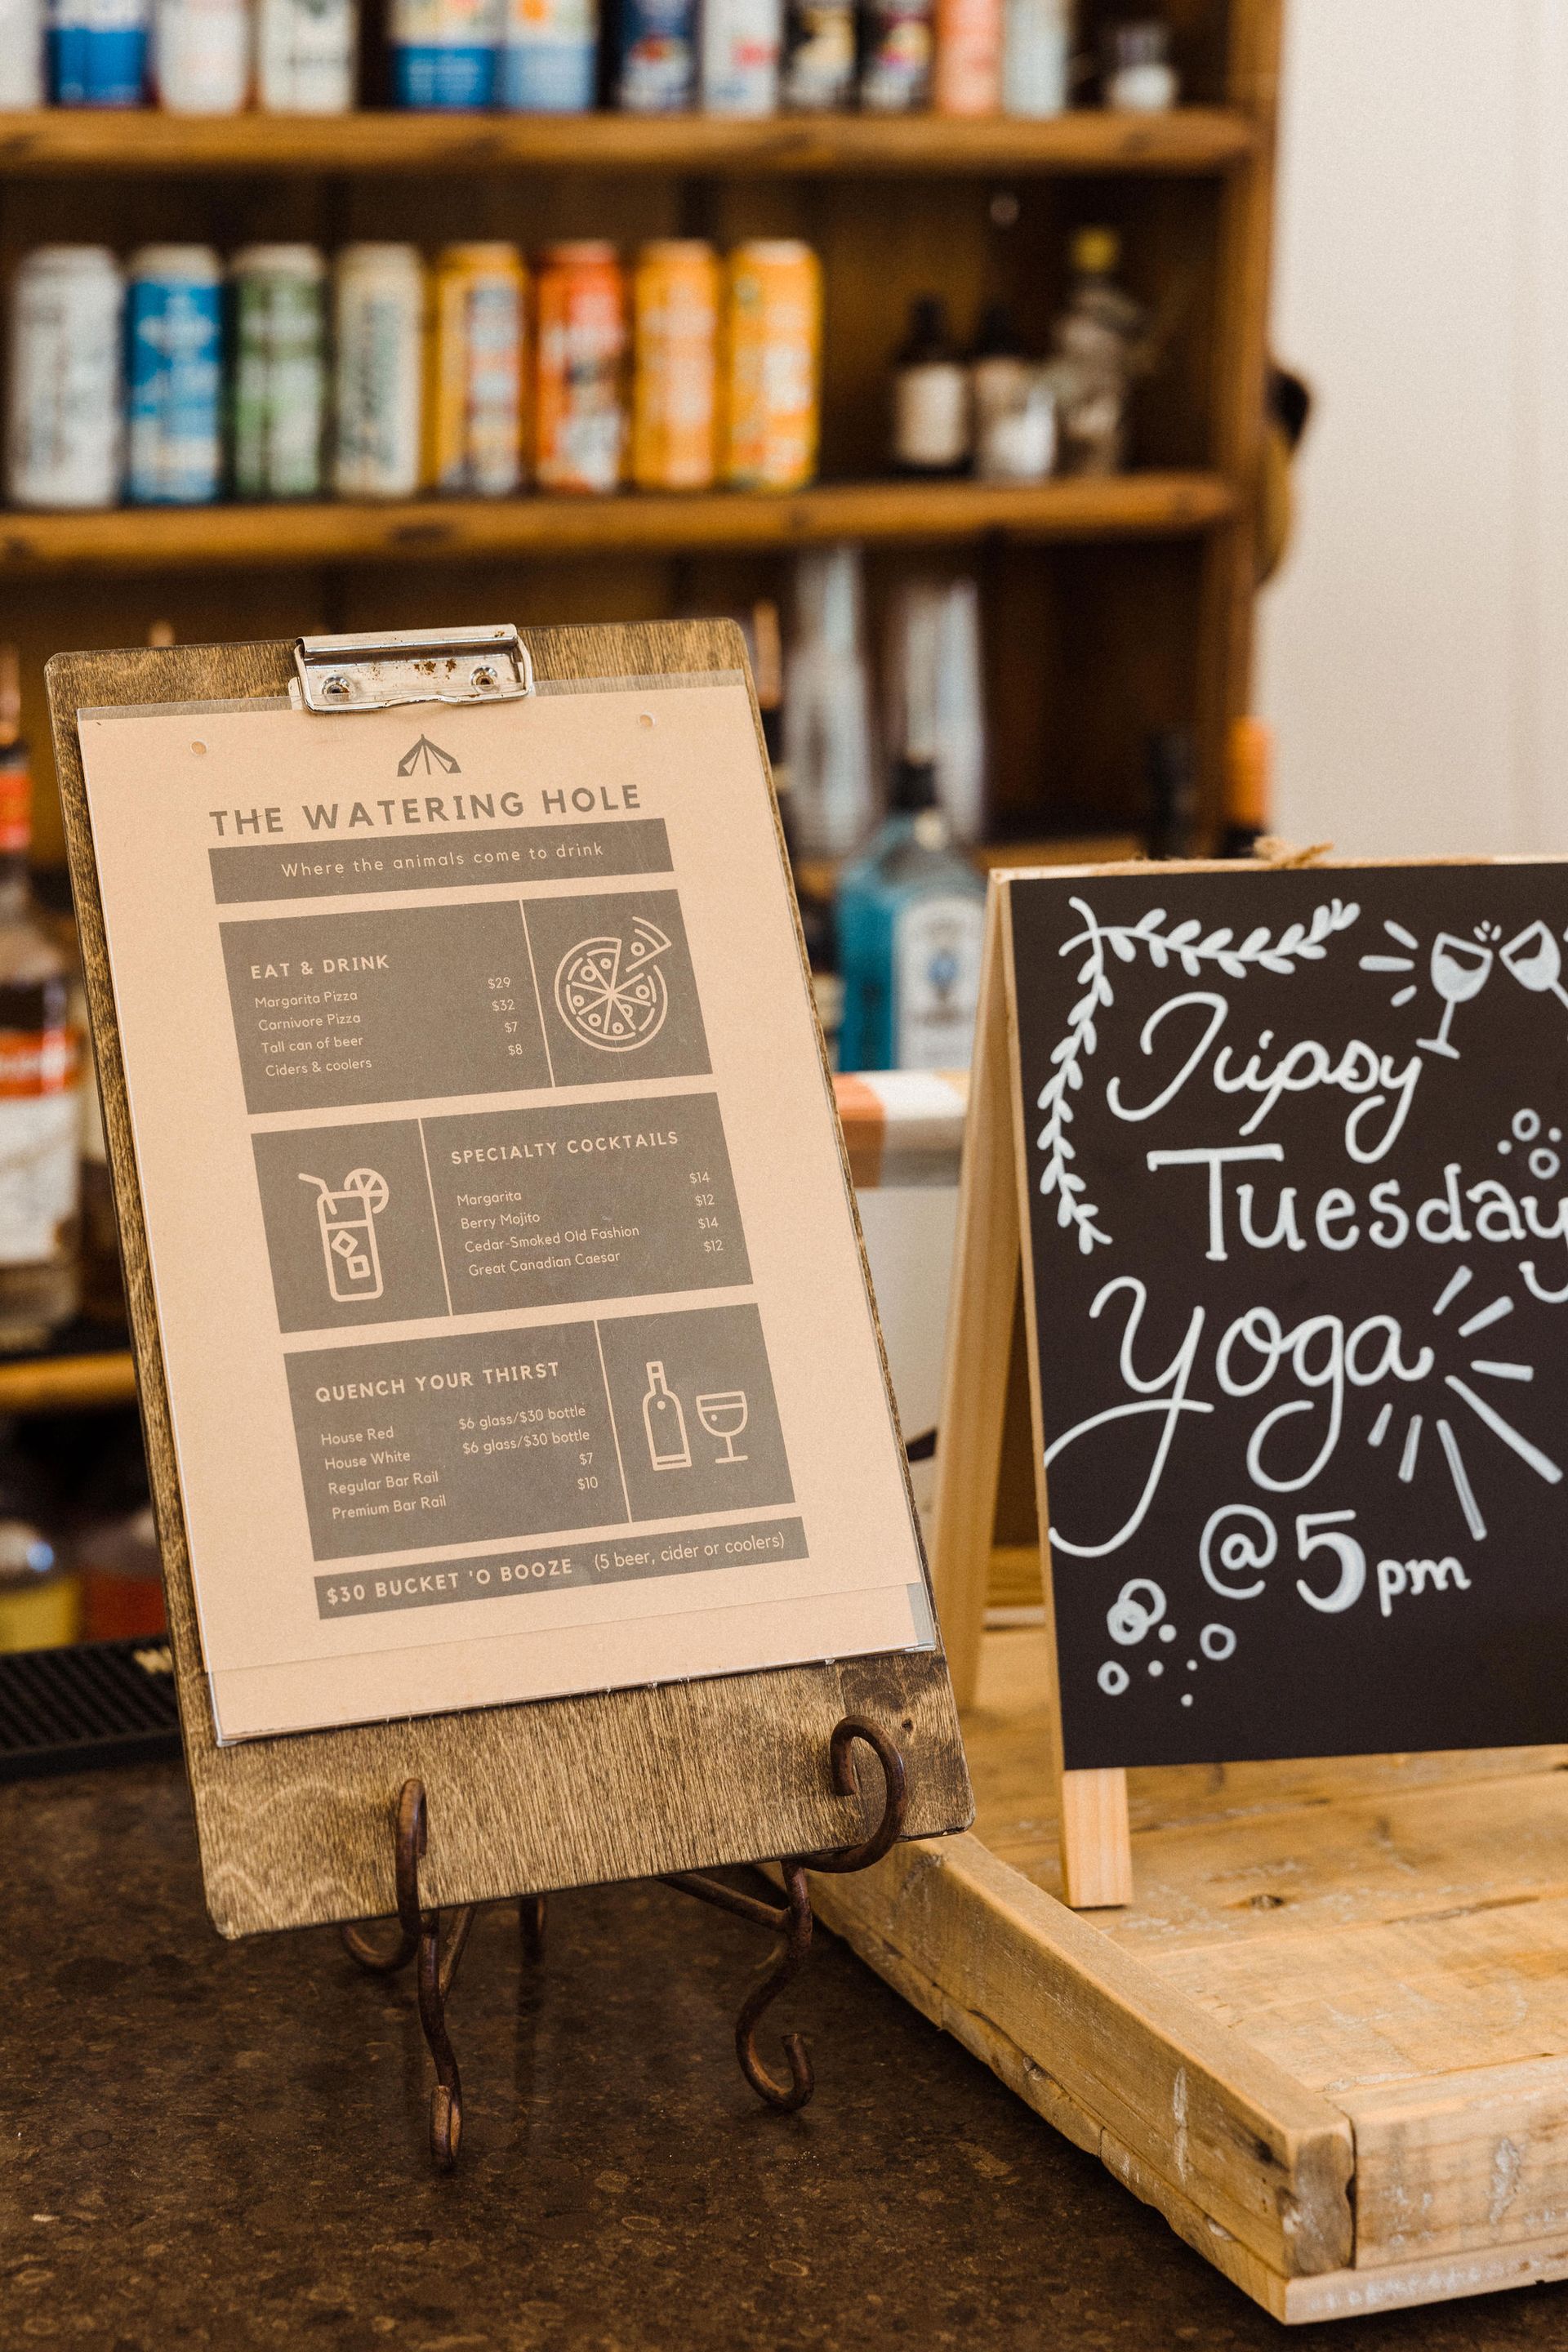 THE WATERING HOLE
Where the animals come to drink
EAT & DRINK
Margarita Pizza $29
Carnivore Pizza $32
Tall can of beer $7
Ciders & coolers $8
SPECIALTY COCKTAILS
Margarita $14
Berry Mojito $12
Cedar-Smoked Old Fashion $14
Great Canadian Caesar $12
QUENCH YOUR THIRST
House Red $6 glass/$30 bottle
House White $6 glass/$30 bottle
Regular Bar Rail $7
Premium Bar Rail $10
$30 BUCKET 'O BOOZE (5 beer, cider or coolers)
Tipsy
Tuesday
Yoga
@ 5pm